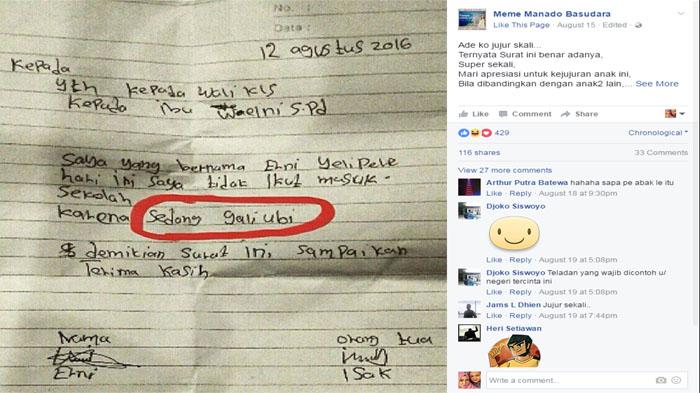 No. :
Date :
12 agustus 2016
Kepada
yth kepada wali kls
kepada ibu Waelni S.Pd
Saya yang bernama Erni Yeli Pele
hari ini saya tidak ikut masuk -
Sekolah
karena sedang gali ubi
demikian surat ini sampaikan
terima kasih
Nama
orang tua
Erni
Isak
Meme Manado Basudara
Like This Page · August 15 · Edited ·
Ade ko jujur skali...
Ternyata Surat ini benar adanya,
Super sekali,
Mari apresiasi untuk kejujuran anak ini,
Bila dibandingkan dengan anak2 lain,... See More
Like Comment Share
429
Chronological
116 shares
33 Comments
View 27 more comments
Arthur Putra Batewa hahaha sapa pe abak le itu
Like · Reply · August 18 at 9:30pm
Djoko Siswoyo
Like · Reply · August 19 at 5:08pm
Djoko Siswoyo Teladan yang wajib dicontoh u/
negeri tercinta ini
Like · Reply · August 19 at 5:08pm
Jams L Dhien Jujur sekali..
Like · Reply · August 19 at 7:44pm
Heri Setiawan
Write a comment...